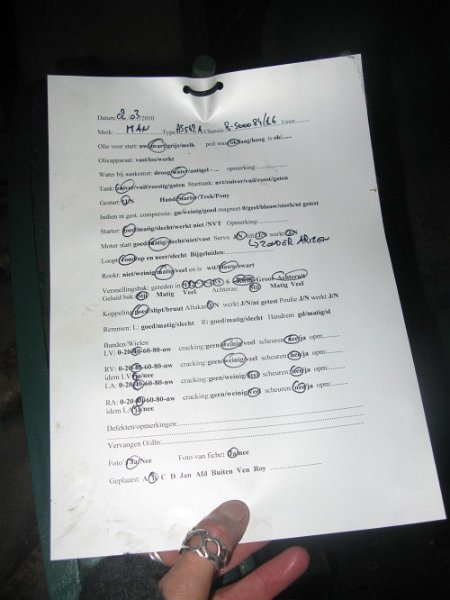 Datum: 2.03/2010
Merk: MAN Type AS542A Chassis: R-5000 84/26 Uren:......
Olie voor start: nw/zwart/grijs/melk peil was ok/laag/hoog is ok/.....
Olieaparaat: vast/los/werkt
Water bij aankoms: droog/water/antigel - ... opmerking:..........
Tank: zuiver/vuil/roestig/gaten Starttank: nvt/zuiver/vuil/roest/gaten
Gestart: J/N Hand/Starter/Trek/Pony
Indien nt gest. compressie: gn/weinig/goed magneet 0/geel/blauw/sterk/nt getest
Starter: goed/matig/slecht/werkt niet /NVT Opmerking:..........
Motor start goed/matig/slecht/niet/vast Servo J/N lift J/N werkt J/N
ZONDER ARMEN
Rookt: niet/weinig/matig/veel en is wit/blauw/zwart
Geluid bak: Matig Veel Achteras: Matig Veel
Koppeling: goed/slipt/bruut Aftakas J/N werkt J/N/nt getest Poulie J/N werkt J/N
Remmen: L: goed/matig/slecht R: goed/matig/slecht Handrem gd/matig/sl
Banden/Wielen
LV: 0-20-40-60-80-nw cracking:geen/weinig/veel scheuren: nee/ja opm:......
RV: 0-20-40-60-80-nw cracking:geen/weinig/veel scheuren: nee/ja opm:......
idem LV: ja/nee
LA: 0-20-40-60-80-nw cracking:geen/weinig/veel scheuren: nee/ja opm:......
RA: 0-20-40-60-80-nw cracking:geen/weinig/veel scheuren: nee/ja opm:......
idem LA: ja/nee
Defekten/opmerkingen:..........
Vervangen O/dln:..........
Foto: Ja/Nee Foto van fiche: Ja/nee
Geplaatst: A B C D Jan Afd Buiten Ven Roy ..........